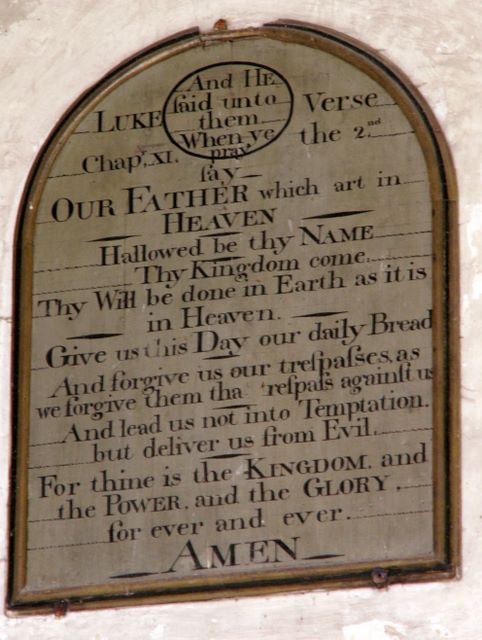 And HE
ſaid unto
LUKE them. Verse
When ye
Chap; XI. pray, the 2nd
ſay
OUR FATHER which art in
HEAVEN
Hallowed be thy NAME
Thy Kingdom come.
Thy Will be done in Earth as it is
in Heaven.
Give us this Day our daily Bread
And forgive us our treſpaſses, as
we forgive them tha treſpaſs againſt us
And lead us not into Temptation.
but deliver us from Evil.
For thine is the KINGDOM. and
the POWER. and the GLORY.
for ever and ever.
AMEN